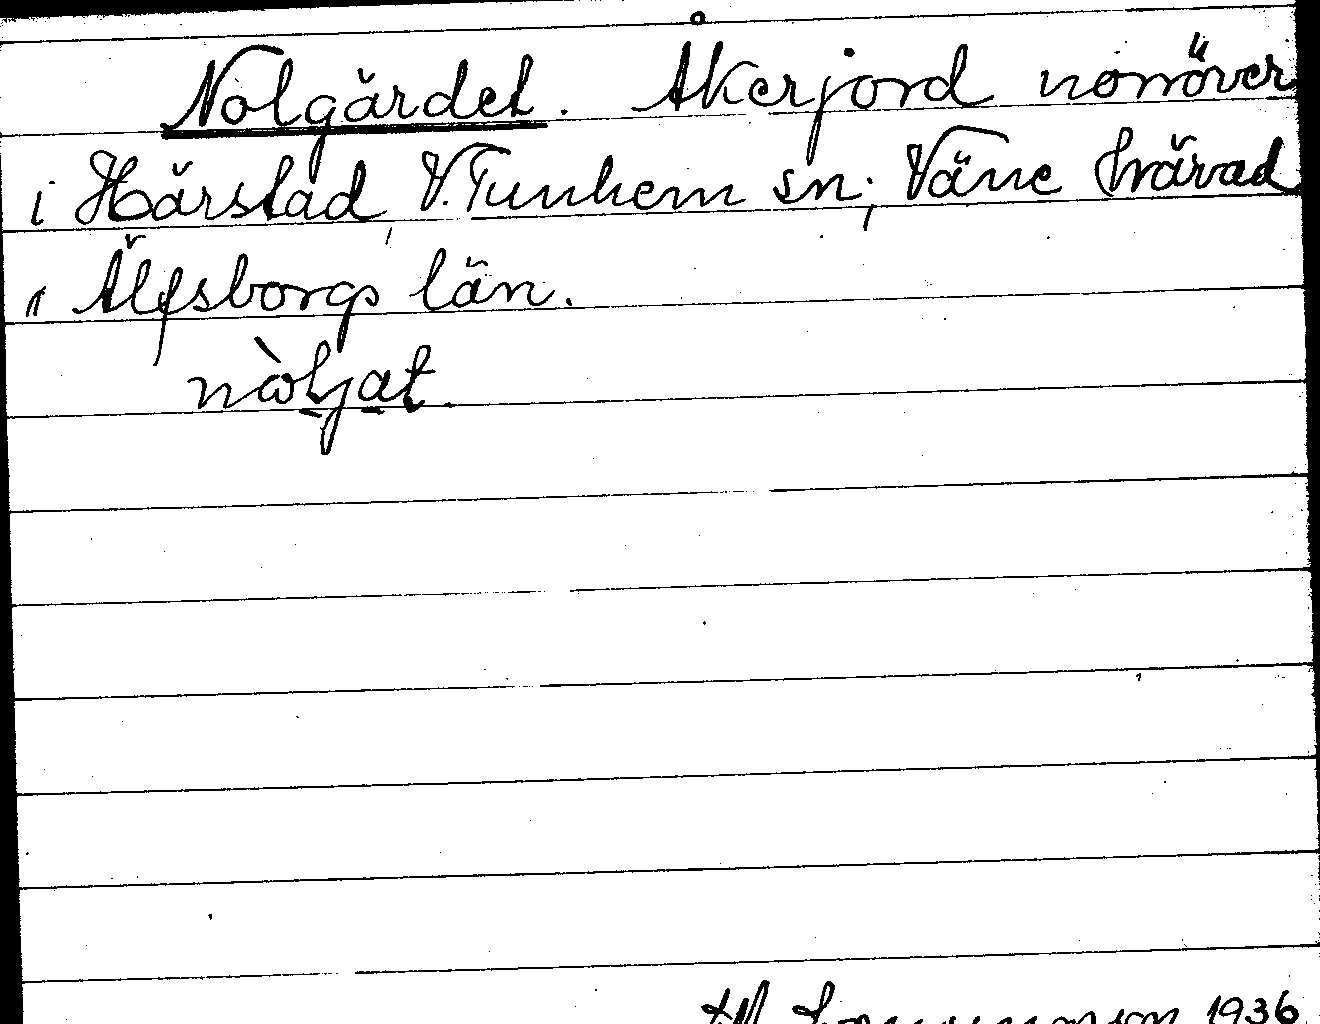 Nolgärdet. Åkerjord norröver
i Härstad, V. Tunhem sn; Väne härad
" Älfsborgs län.
nòljat.
1936